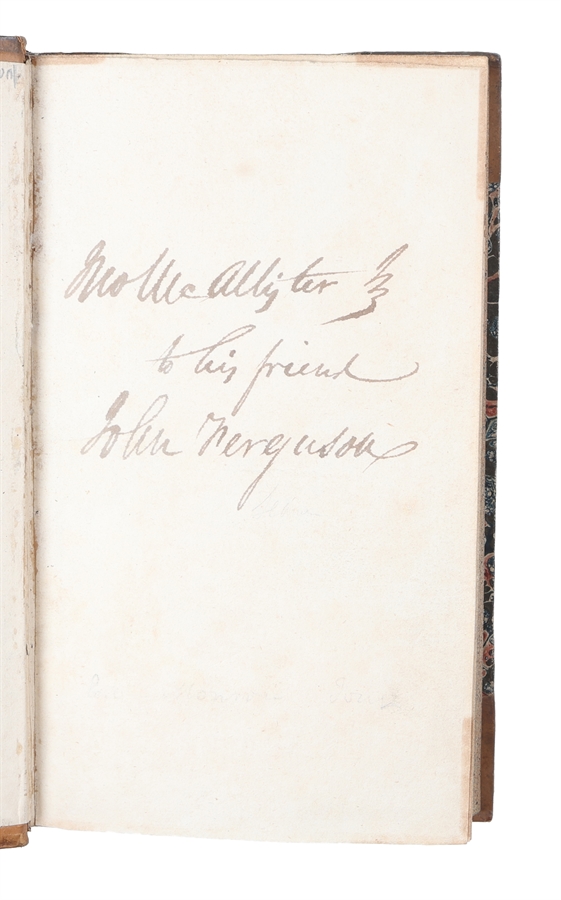 Jno McAllister Jr
to his friend
John Ferguson